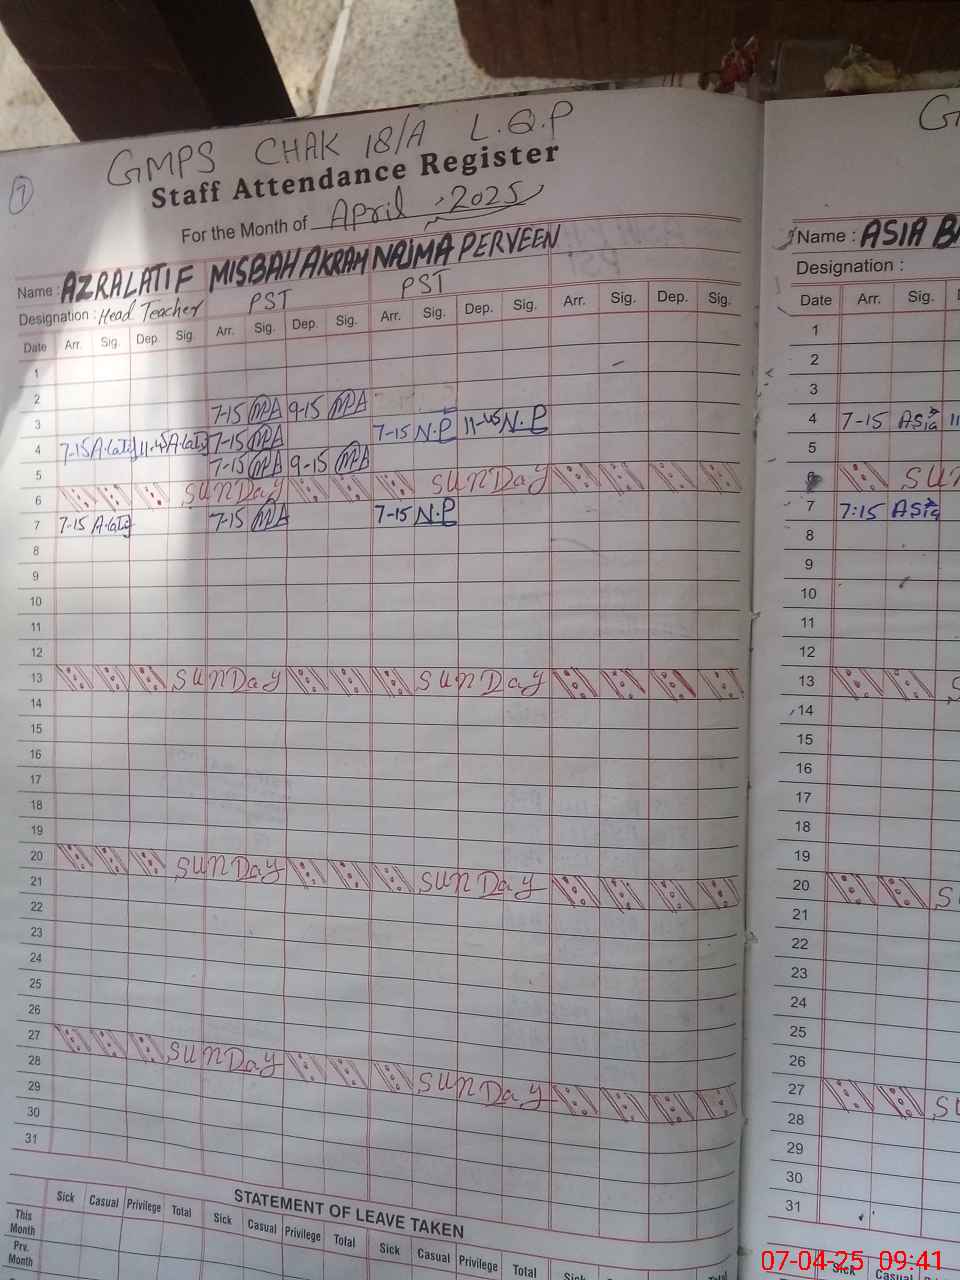 GMPS CHAK 18/A L.Q.P
7
Staff Attendance Register
For the Month of April, 2025
Name : AZRA LATIF MISBAH AKRAM NAJMA PERVEEN
Designation : Head Teacher PST PST
Date Arr. Sig. Dep. Sig. Arr. Sig. Dep. Sig. Arr. Sig. Dep. Sig. Arr. Sig. Dep. Sig.
1
2
3 7-15 MA 9-15 MA
4 7-15 A.latif 11-45 A.latif 7-15 MA 7-15 N.P 11-45 N.P
5 7-15 MA 9-15 MA
6 SUNDAY SUNDAY
7 7-15 A.latif 7-15 MA 7-15 N.P
8
9
10
11
12
13 SUNDAY SUNDAY
14
15
16
17
18
19
20 SUNDAY SUNDAY
21
22
23
24
25
26
27 SUNDAY SUNDAY
28
29
30
31
STATEMENT OF LEAVE TAKEN
Sick Casual Privilege Total Sick Casual Privilege Total Sick Casual Privilege Total Sick
This Month
Prv. Month
Name : ASIA
Designation :
Date Arr. Sig.
1
2
3
4 7-15 Asia
5
6 SUN
7 7:15 Asia
8
9
10
11
12
13
14
15
16
17
18
19
20
21
22
23
24
25
26
27
28
29
30
31
Sick Casual
07-04-25 09:41